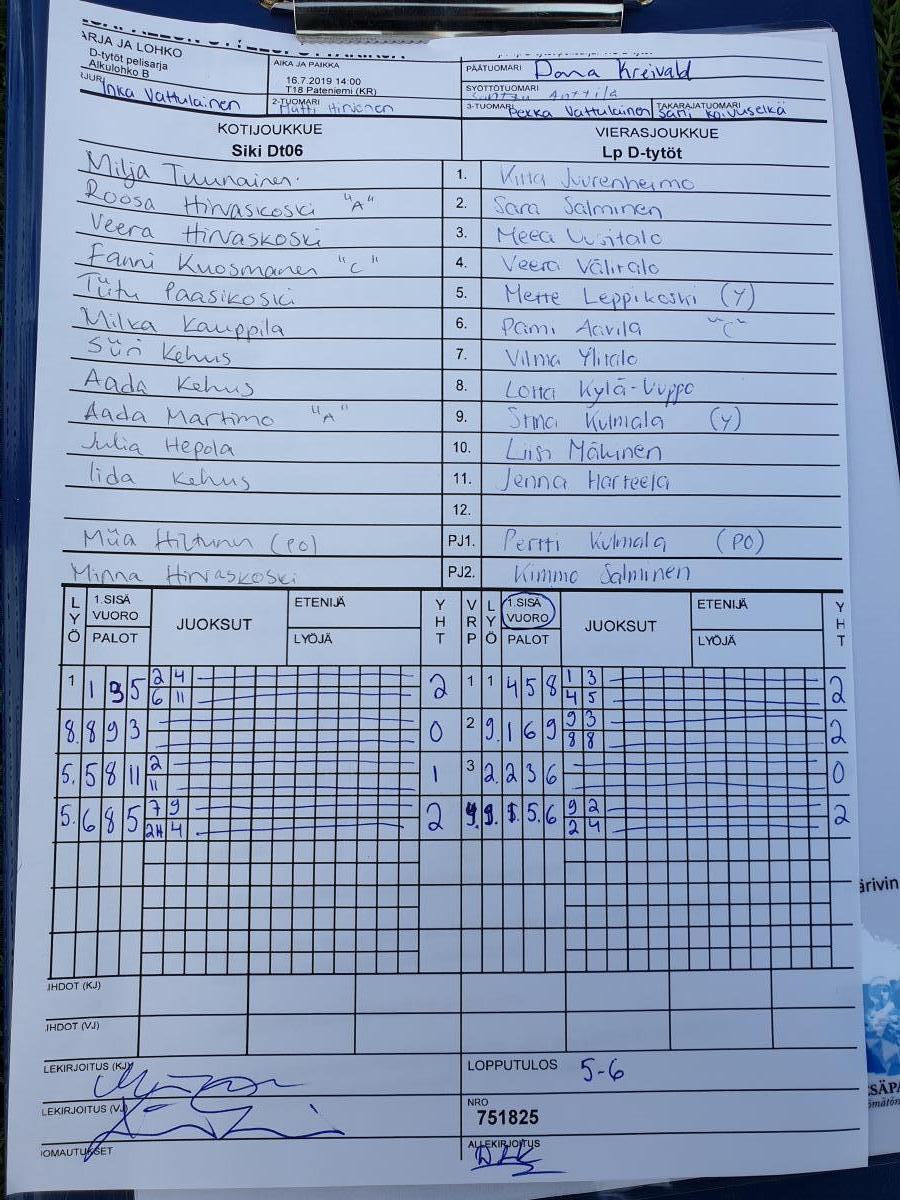 ARJA JA LOHKO
D-tytöt pelisarja
Alkulohko B
AIKA JA PAIKKA
16.7.2019 14:00
T18 Pateniemi (KR)
PÄÄTUOMARI Dana Kreivald
SYÖTTÖTUOMARI Anttila
Inka Vattulainen
2-TUOMARI Matti Hirvonen
3-TUOMARI Pekka Vattulainen
TAKARAJATUOMARI Sari Koivuselkä
KOTIJOUKKUE VIERASJOUKKUE
Siki Dt06 Lp D-tytöt
Milja Tuunainen 1. Juurenheimo
Roosa Hirvaskoski "A" 2. Sara Salminen
Veera Hirvaskoski 3. Meea Uusitalo
Fanni Kuosmanen "C" 4. Veera Välitalo
Tiitu Paasikoski 5. Mette Leppikoski (Y)
Milka Kauppila 6. Pami Aavila "C"
Siiri Kehus 7. Vilma Ylitalo
Aada Kehus 8. Lotta Kylä-Uuppo
Aada Martimo "A" 9. Stina Kulmala (Y)
Julia Hepola 10. Liisi Mäkinen
Iida Kehus 11. Jenna Harteela
12.
Miia Hiltunen (PO) PJ1. Pertti Kulmala (PO)
Minna Hirvaskoski PJ2. Kimmo Salminen
LYÖ 1.SISÄ VUORO PALOT JUOKSUT ETENIJÄ LYÖJÄ YHT VRP LYÖ 1.SISÄ VUORO PALOT JUOKSUT ETENIJÄ LYÖJÄ YHT
1 1 3 5 2 4 2 1 1 4 5 8 1 3 2
6 11 4 5
8. 8 9 3 0 2 9. 1 6 9 9 3 2
8 8
5. 5 8 11 2 1 3 2. 2 3 6 0
11
5. 6 8 5 7 9 2 5. 6 9 2 2
4 2 4
IHDOT (KJ)
IHDOT (VJ)
LEKIRJOITUS (KJ) LOPPUTULOS 5-6
LEKIRJOITUS (VJ) NRO
751825
OMAUTUKSET ALLEKIRJOITUS
ärivin